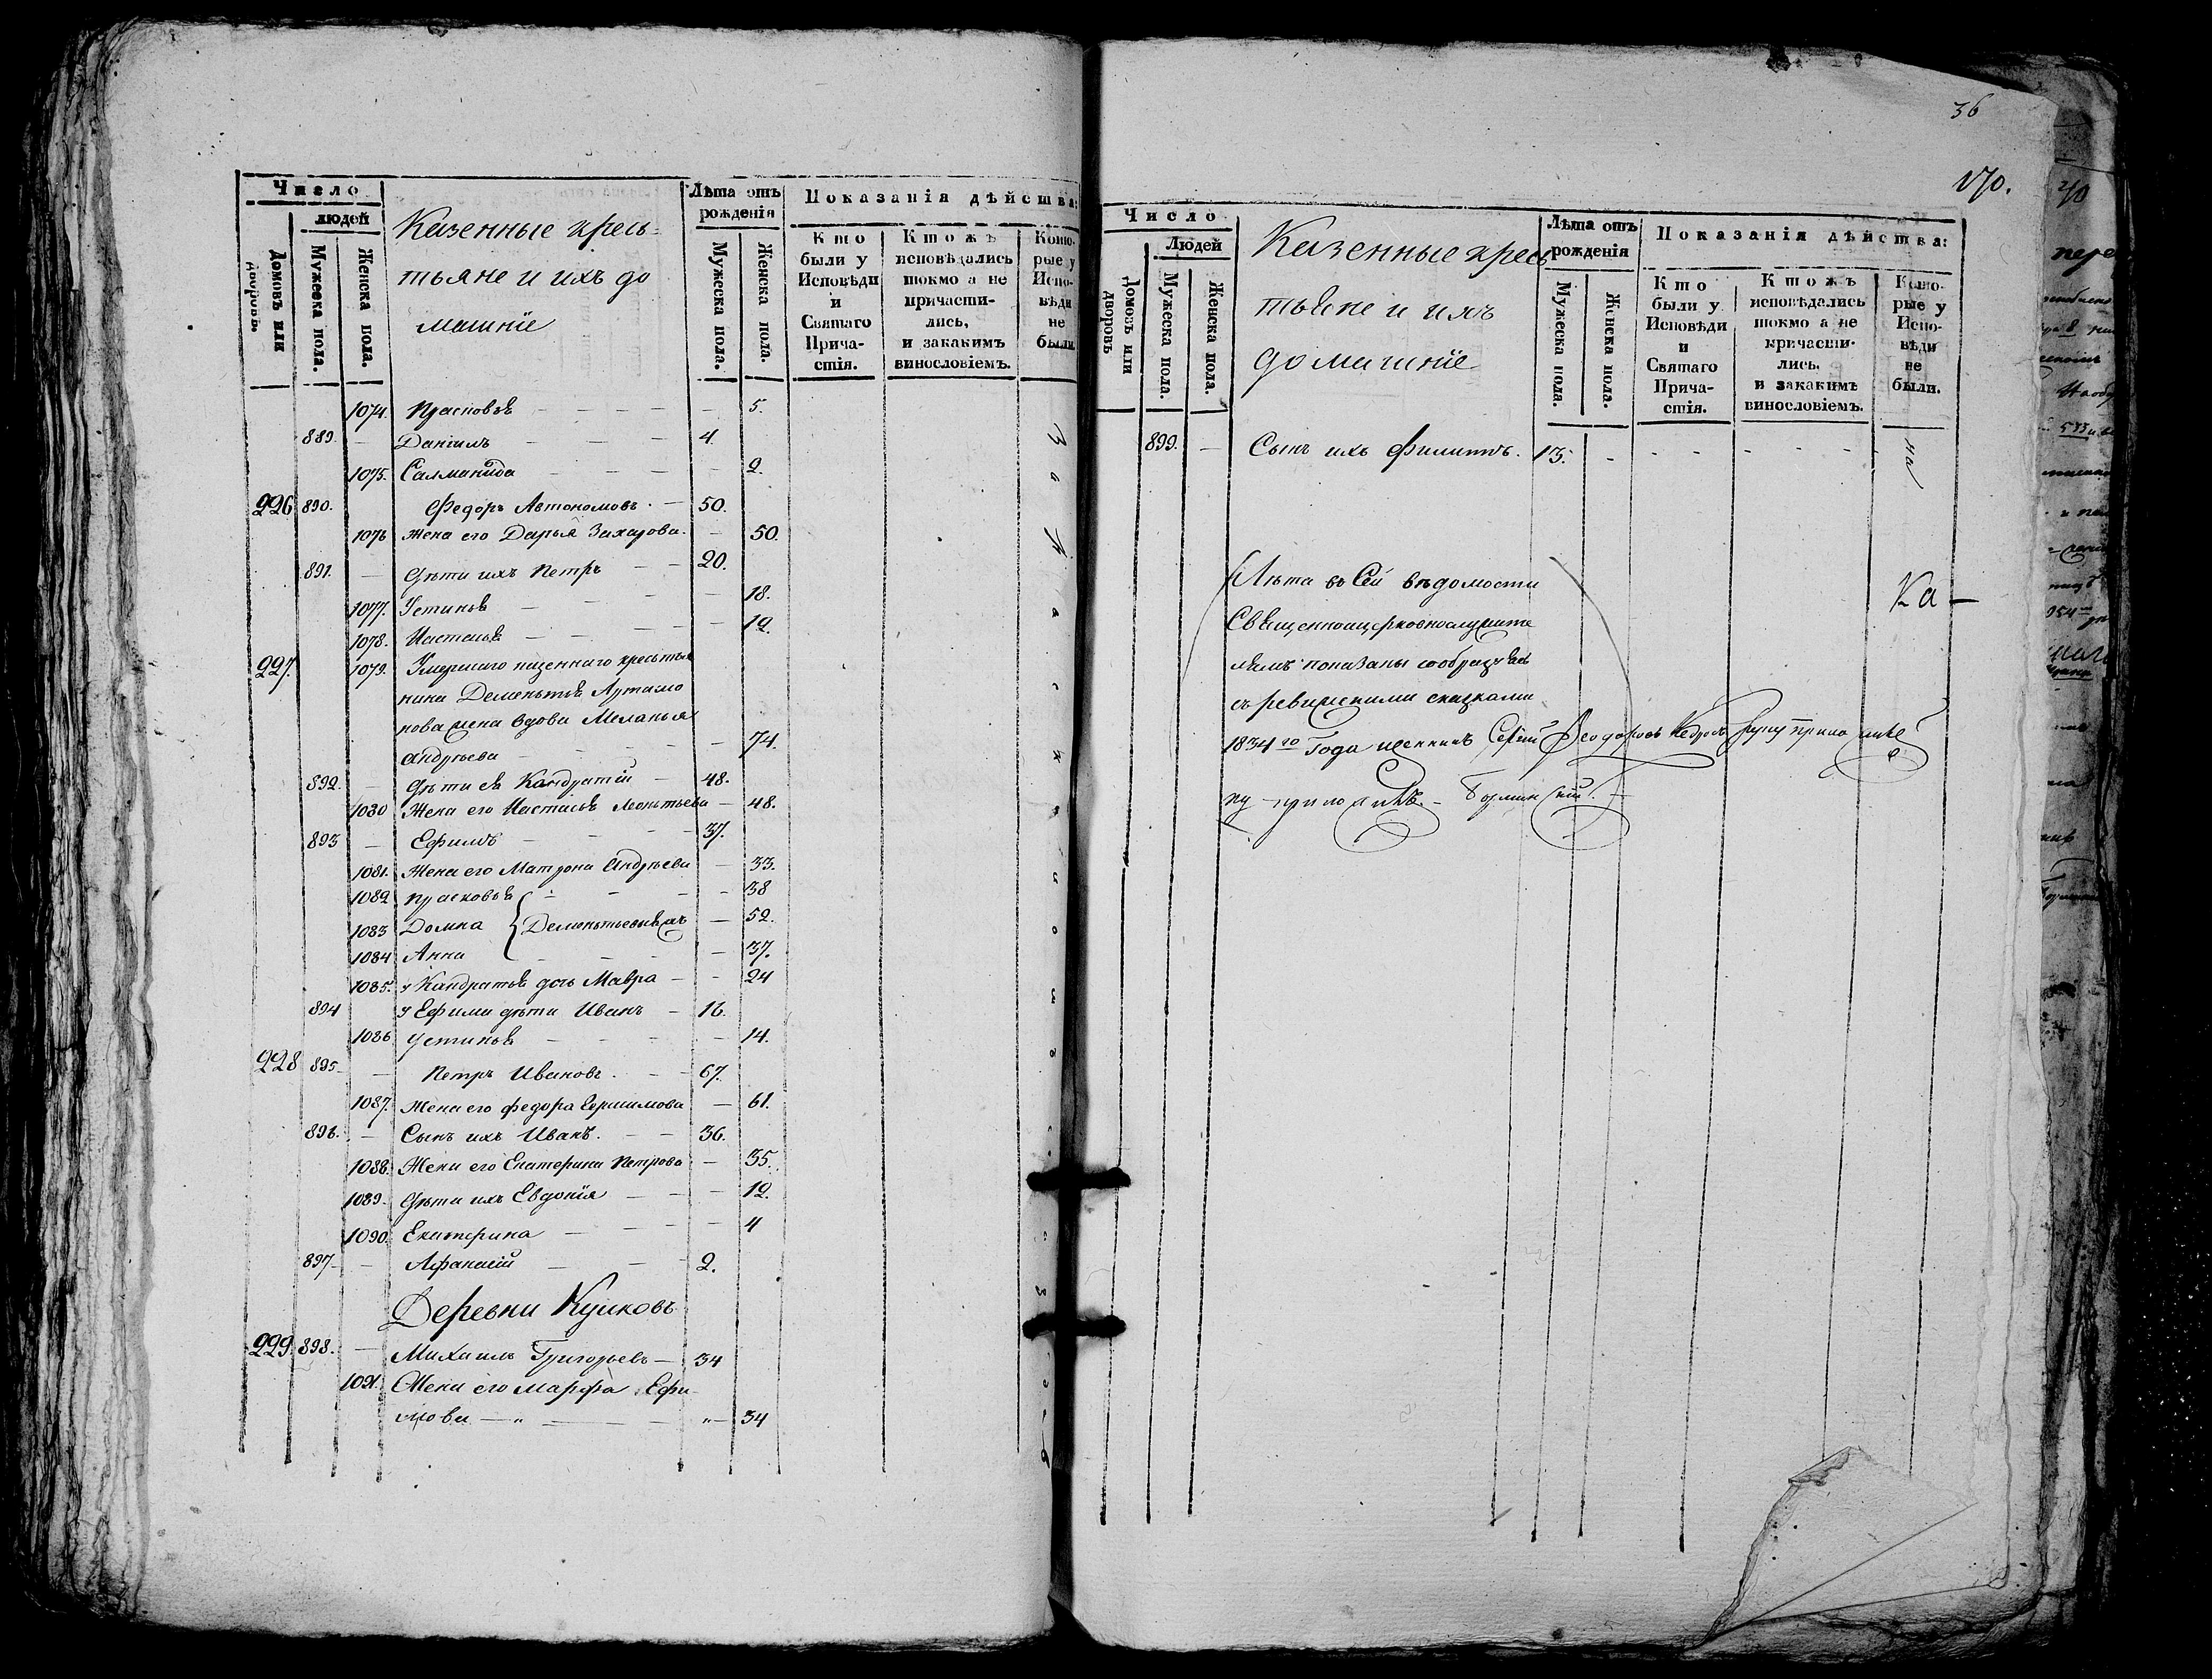 Число
людей
Домовъ или дворовъ
Мужеска пола.
Женска пола.
Казенные кресь=
тьяне и ихъ до
машніе
Лѣта отъ
рожденія
Мужеска пола.
Женска пола.
Показанія дѣйства:
Кто
были у
Исповѣди
и
Святаго
Прича-
стія.
Ктожъ
исповѣдались
токмо а не
причасти-
лись,
и закакимъ
винословіемъ.
Кото-
рые у
Испо-
вѣди
не
были.
1074. Прасковья - 5.
889. Даніилъ 4.
1075. Саломанида - 2.
226 890. Федоръ Автономовъ. 50.
1076 Жена его Дарья Захарова. - 50.
891. Дѣти ихъ Петръ 20.
1077. Устинья - 18.
1078. Настасья - 12.
227. 1079. Умершаго казеннаго крестья
нина Дементья Артамо
нова жена вдова Меланья
Андрѣева - 74.
892. Дѣти ея Кандратій 48.
1080 Жена его Настасья Леонтьева - 48.
893 Ефимъ 37.
1081. Жена его Матрона Андрѣева - 33.
1082 Прасковья - 38
1083 Домна Дементьевыхъ - 52.
1084 Анна - 37.
1085. у Кандратья дочь Мавра - 24
894 у Ефима дѣти Иванъ 16.
1086 Устинья - 14.
228 895. Петръ Ивановъ. 67.
1087. Жена его Федора - 61.
896. Сынъ ихъ Иванъ. 36.
1088. Жена его Екатерина Петрова - 35.
1089. Дѣти ихъ Евдокія - 12.
1090. Екатерина - 4
897. Афанасій 2.
Деревни Куликовъ
229. 898. Михаилъ Григорьевъ 34
1091. Жена его Марфа Ефи
мова 34
36
170.
Число
Людей
Домовъ или дворовъ
Мужеска пола.
Женска пола.
Казенные кресь
тьяне и ихъ
домашніе
Лѣта отъ
рожденія
Мужеска пола.
Женска пола.
Показанія дѣйства:
Кто
были у
Исповѣди
и
Святаго
Прича-
стія.
Ктожъ
исповѣдались
токмо а не
причасти-
лись,
и закакимъ
винословіемъ.
Кото-
рые у
Испо-
вѣди
не
были.
899. Сынъ ихъ Филиппъ. 13.
Лѣта въ Сей вѣдомости
Священноцерковнослужите
лямъ показаны сообразуясь
съ ревизскими сказками
1834го Года Сергій Феодоровъ руку прило жилъ
ку приложилъ.
Ка-